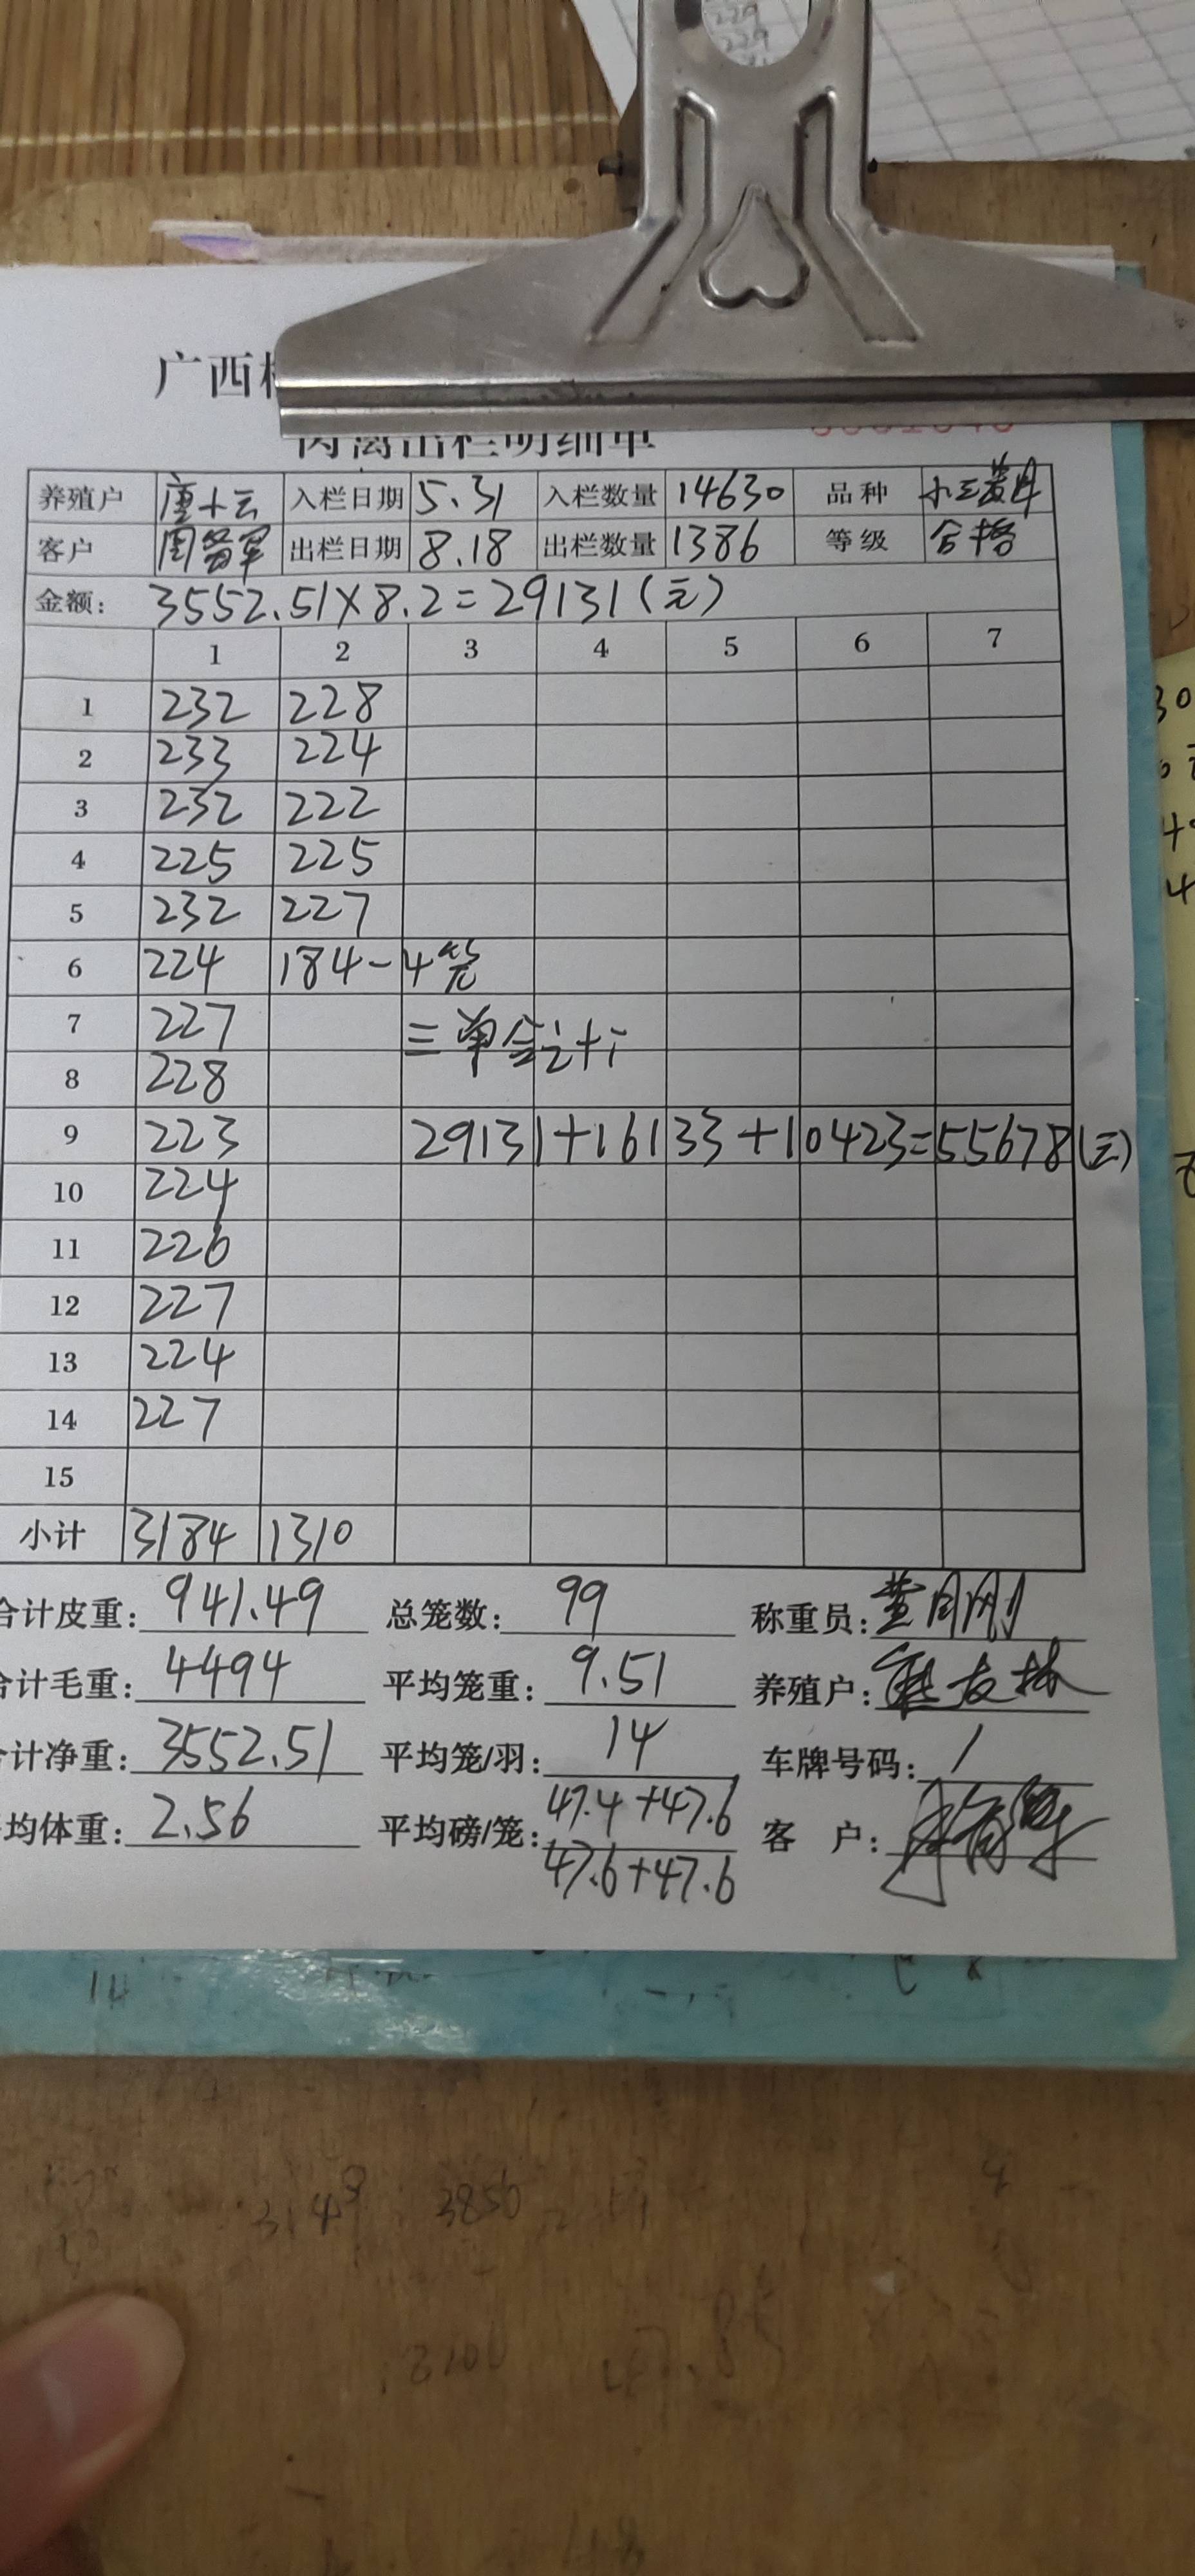 广西
肉禽出栏明细单
养殖户 唐十云 入栏日期 5.31 入栏数量 14630 品种
客户 出栏日期 8.18 出栏数量 1386 等级 合格
金额: 3552.51×8.2=29131(元)
1 2 3 4 5 6 7
1 232 228
2 233 224
3 232 222
4 225 225
5 232 227
6 224 184-4笼
7 227 三单合计
8 228
9 223 29131+16133+10423=55678(元)
10 224
11 226
12 227
13 224
14 227
15
小计 3184 1310
合计皮重: 941.49 总笼数: 99 称重员:
合计毛重: 4494 平均笼重: 9.51 养殖户:
计净重: 3552.51 平均笼/羽: 14 车牌号码: /
均体重: 2.56 平均磅/笼: 47.4+47.6 客 户:
47.6+47.6